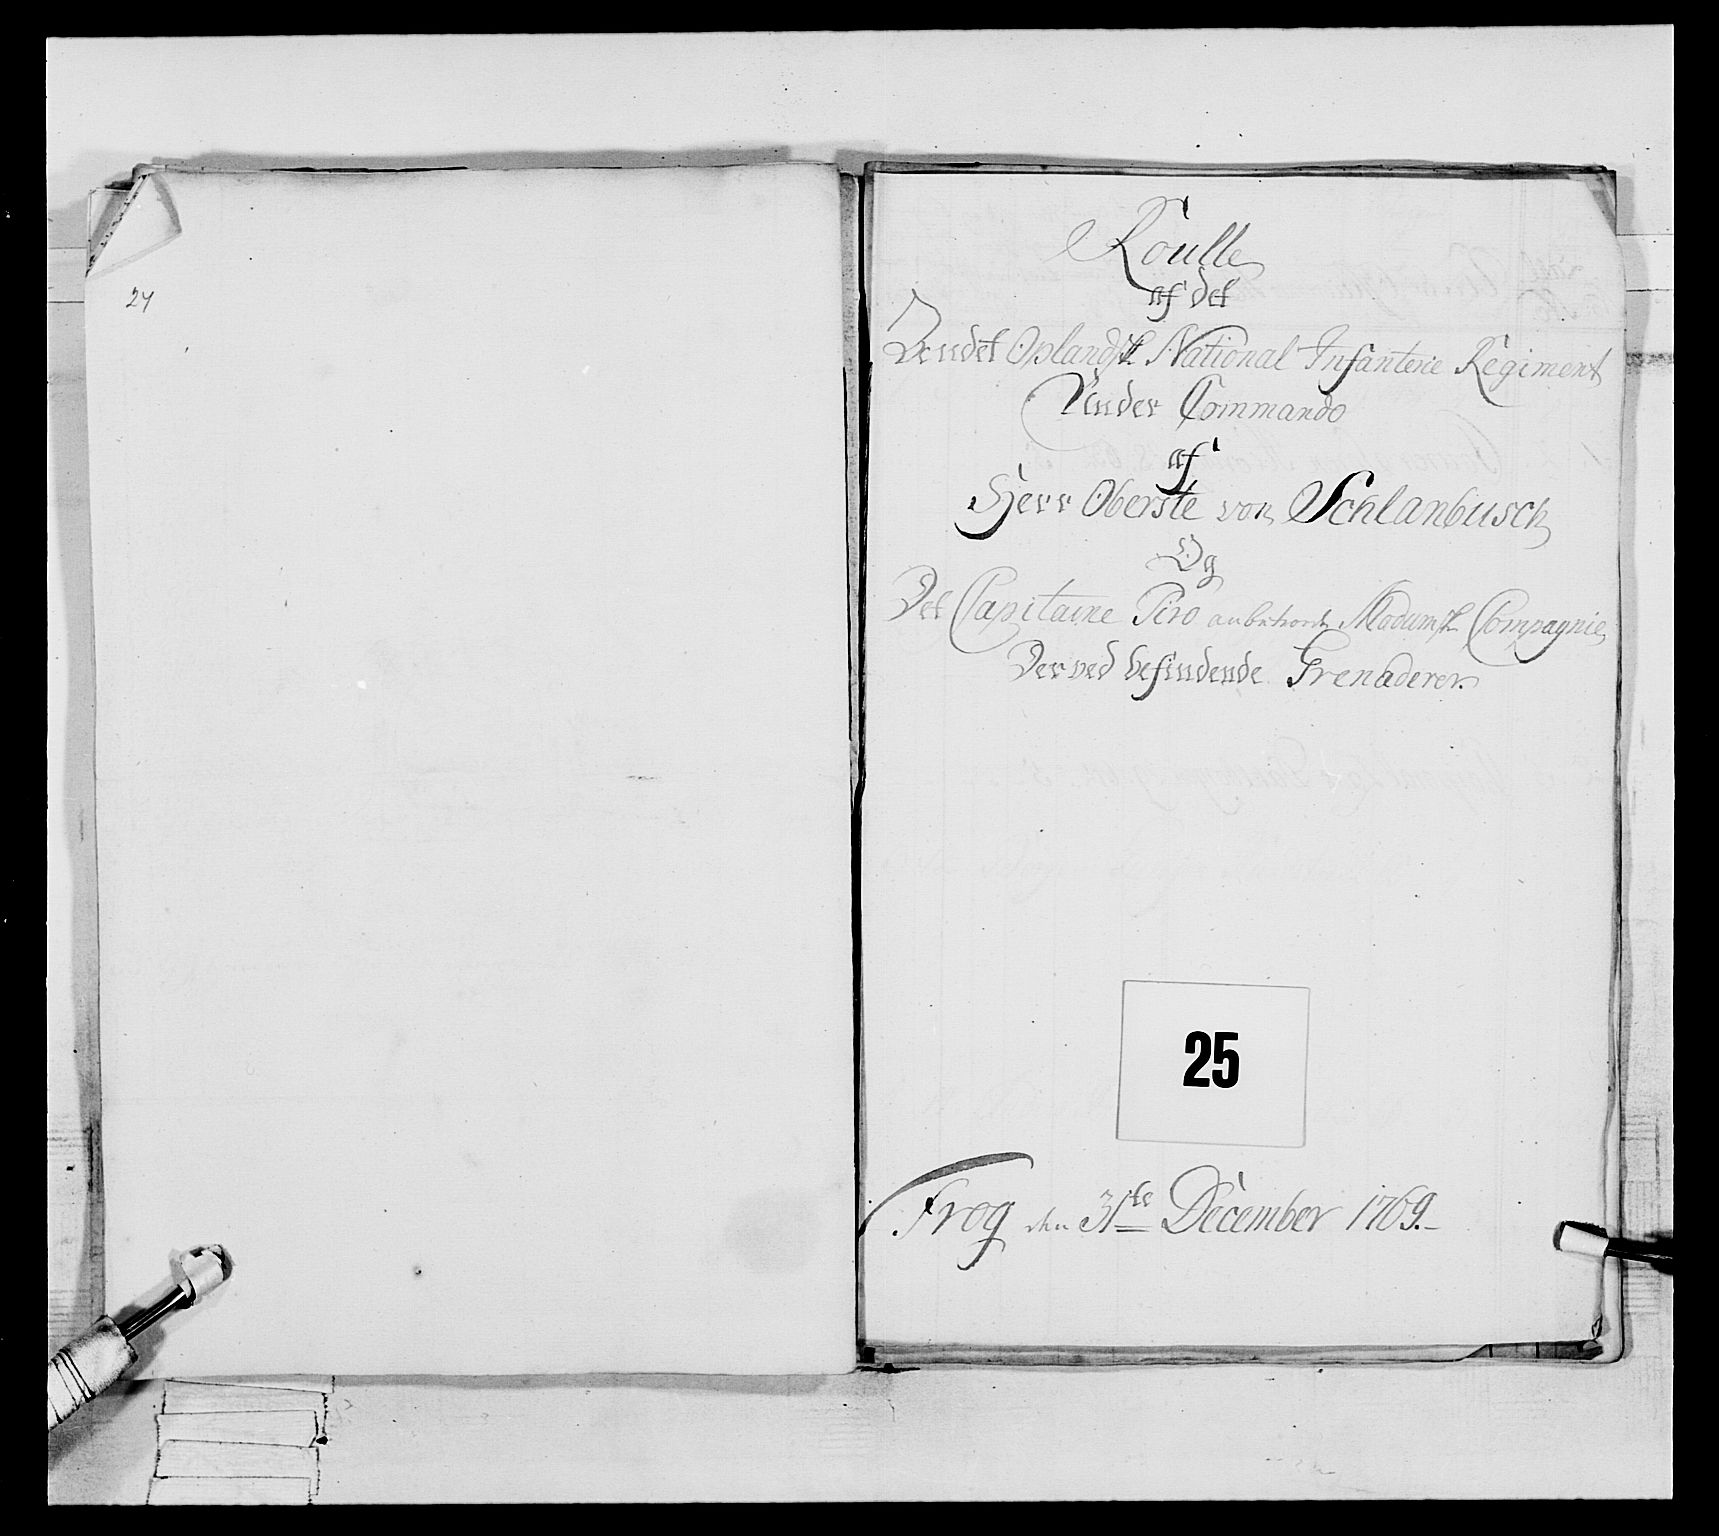 24
Roulle
af det
Andet Oplandsk National Infanterie Regiment
Under Commando
af
Herr Oberste von Schlanbusch
Og
Det Capitaine Piro anbetroede Modumsk Compagnie
Derved befindende Grenaderer.
25
Frog den 31te December 1769.